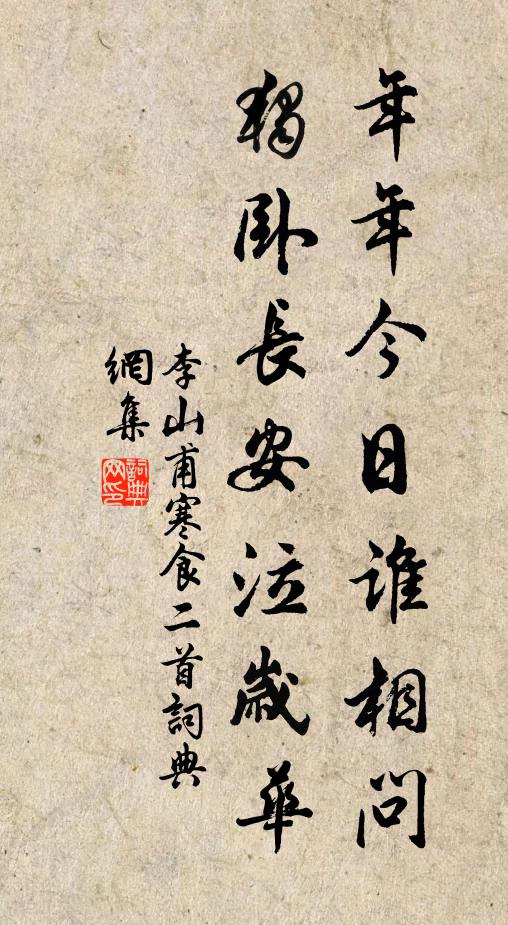 年年今日誰相問
獨卧長安泣歲華
李山甫寒食二首詞典
網集
詞典網印